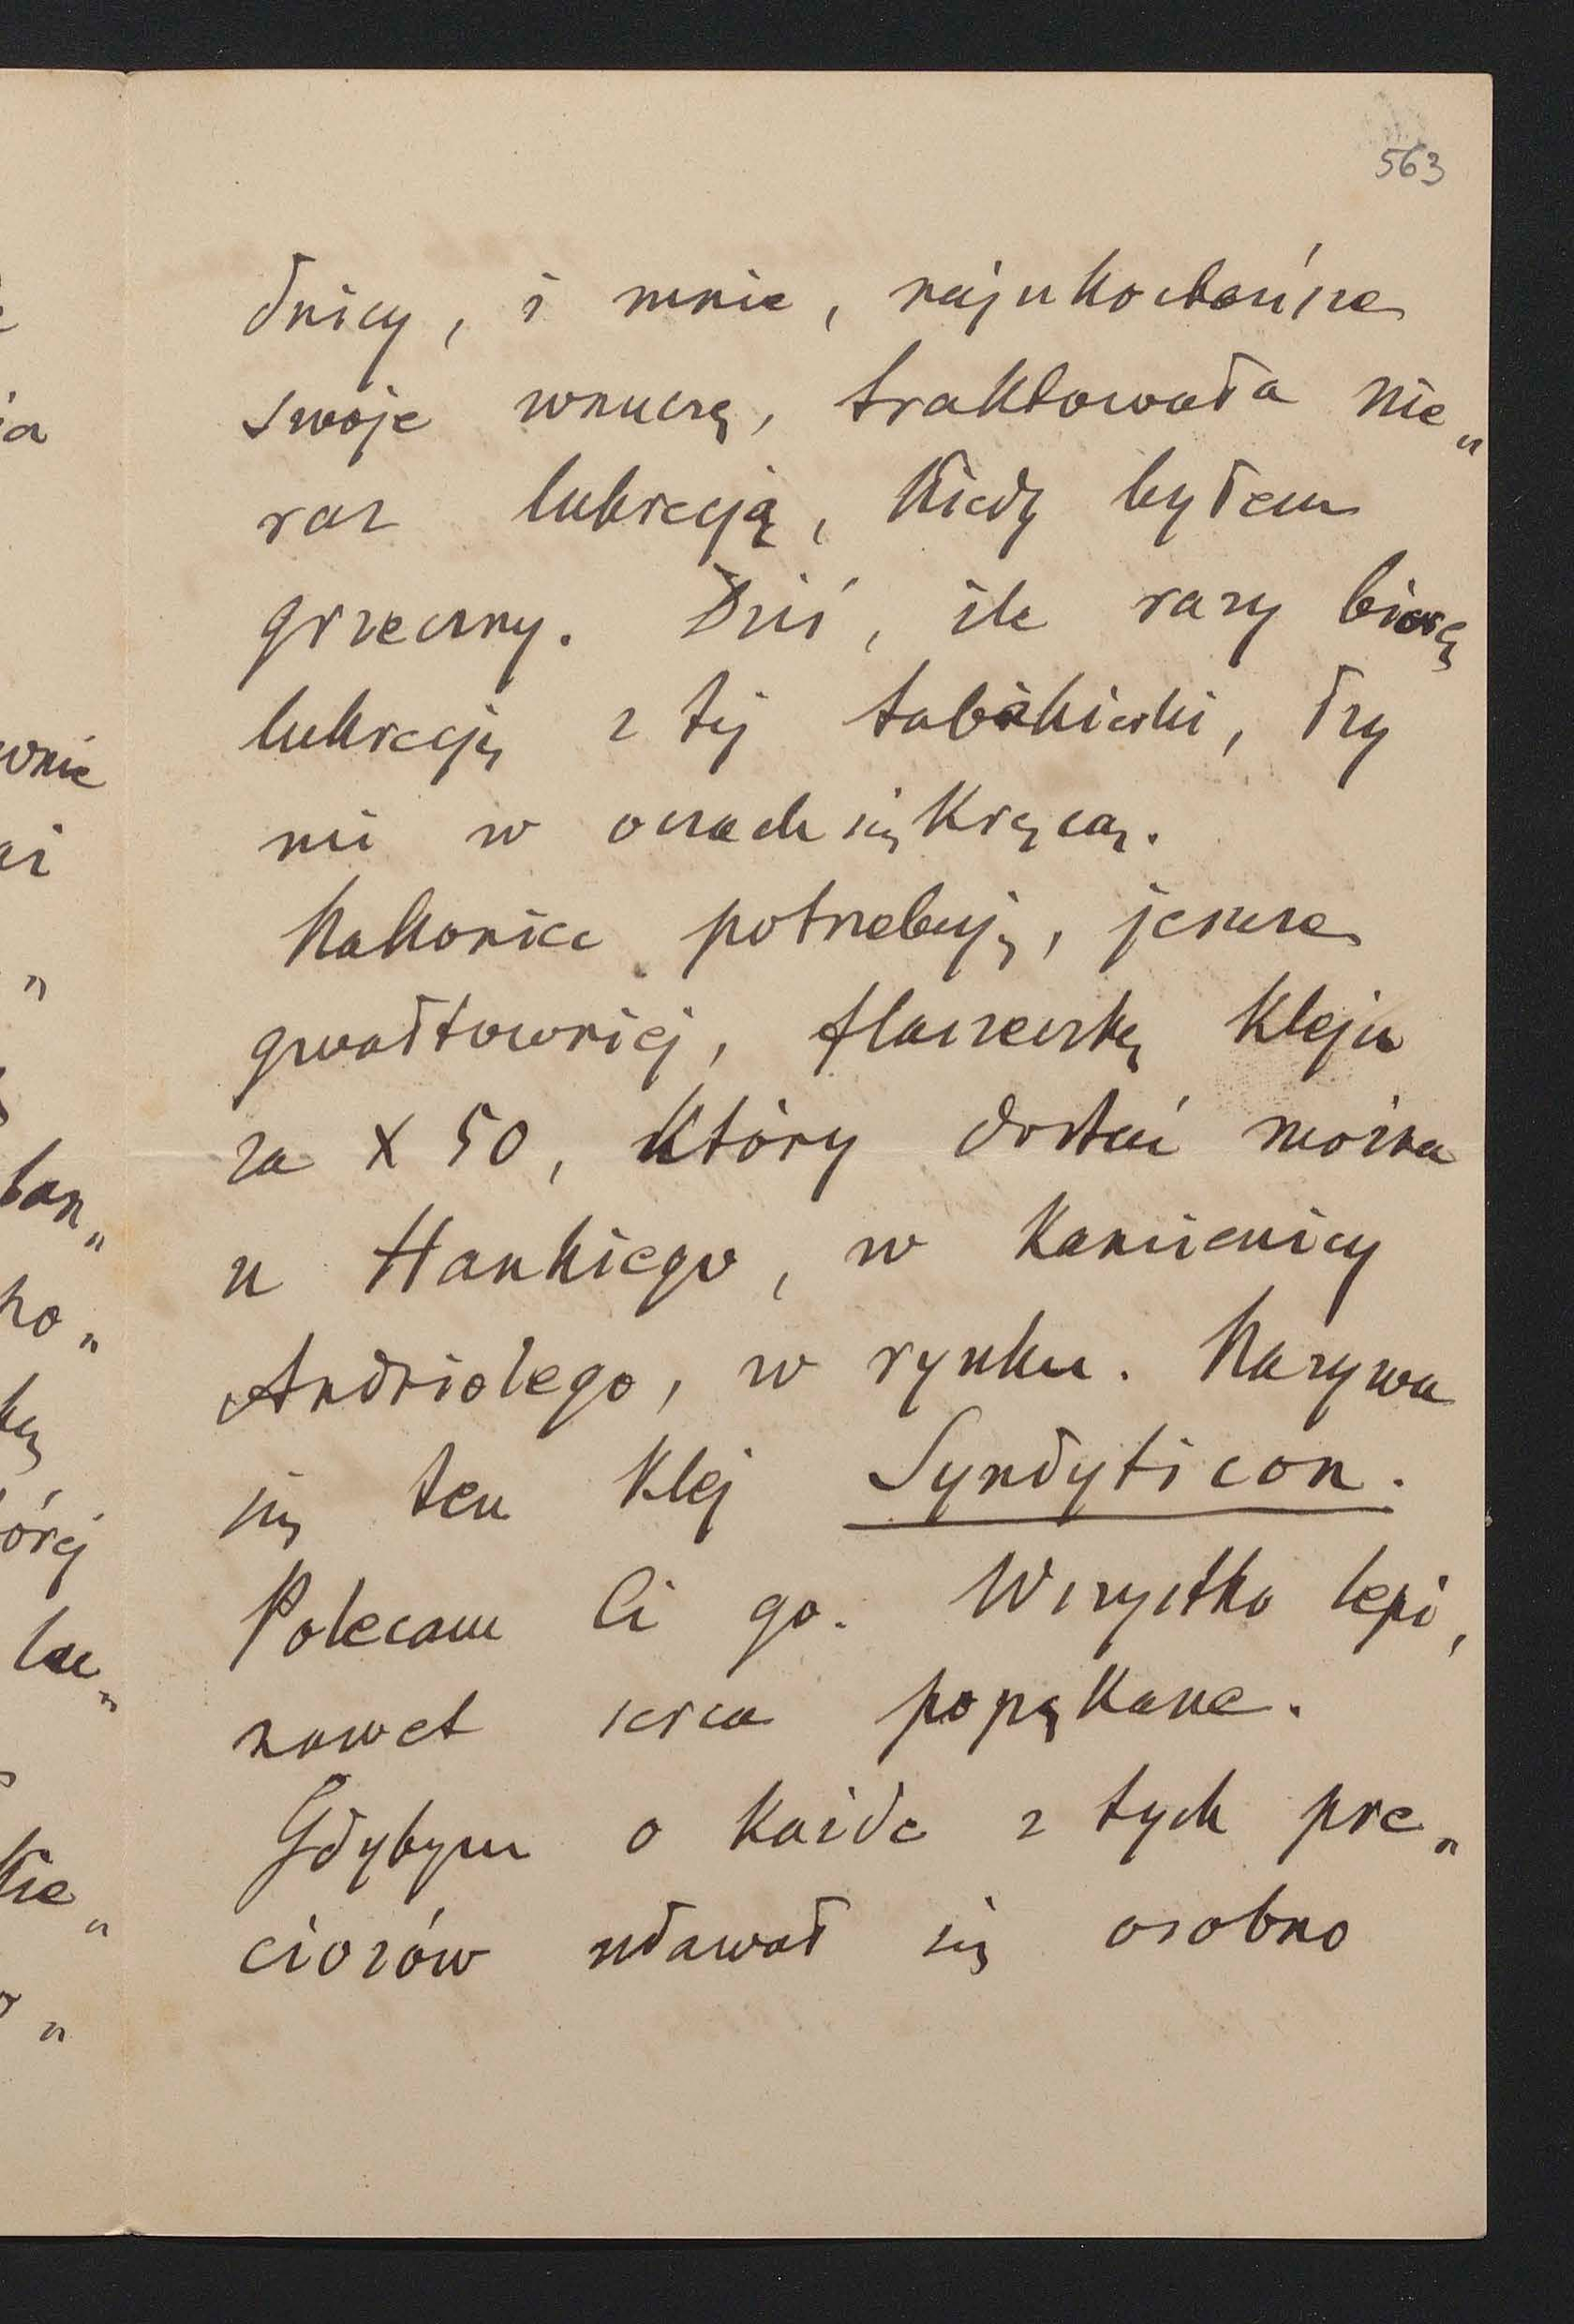 563
dnicy, i mnie, najukochańsze
swoje wnuczę, traktowała nie„
raz lukrecją, kiedy byłem
grzeczny. Dziś, ile razy biorę
lukrecję z tej tabakierki, łzy
mi w oczach się kręcą.
Nakoniec potrzebuję, jeszcze
gwałtowniej, flaszeczkę kleju
za X 50, który dostać można
u Hankiego, w kamienicy
Andriolego, w rynku. Nazywa
się ten klej Syndyticon.
Polecam Ci go. Wszystko lepi,
nawet serca popękane.
Gdybym o każde z tych pre„
ciozów udawał się osobno